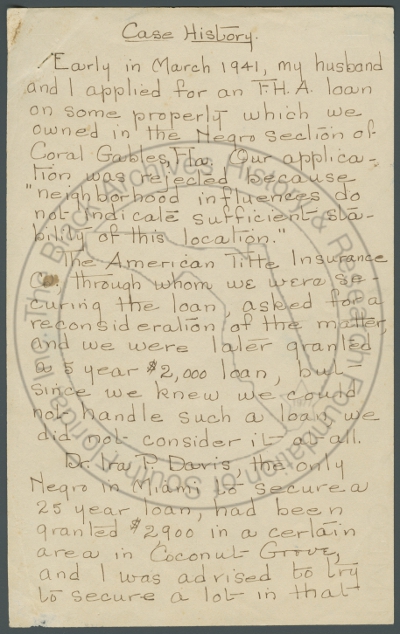 Case History.
Early in March 1941, my husband
and I applied for an F.H.A. loan
on some property which we
owned in the Negro section of
Coral Gables, Fla. Our applica-
tion was rejected because
"neighborhood influences do
not indicate sufficient sta-
bility of this location."
The American Title Insurance
Co. through whom we were se-
curing the loan, asked for a
reconsideration of the matter,
and we were later granted
a 5 year $2,000 loan, but
since we knew we could
not handle such a loan we
did not consider it at all.
Dr. Ira P. Davis, the only
Negro in Miami to secure a
25 year loan, had been
granted $2900 in a certain
area in Coconut Grove,
and I was advised to try
to secure a lot in that
The Black Archives History & Research Foundation of South Florida, Inc.